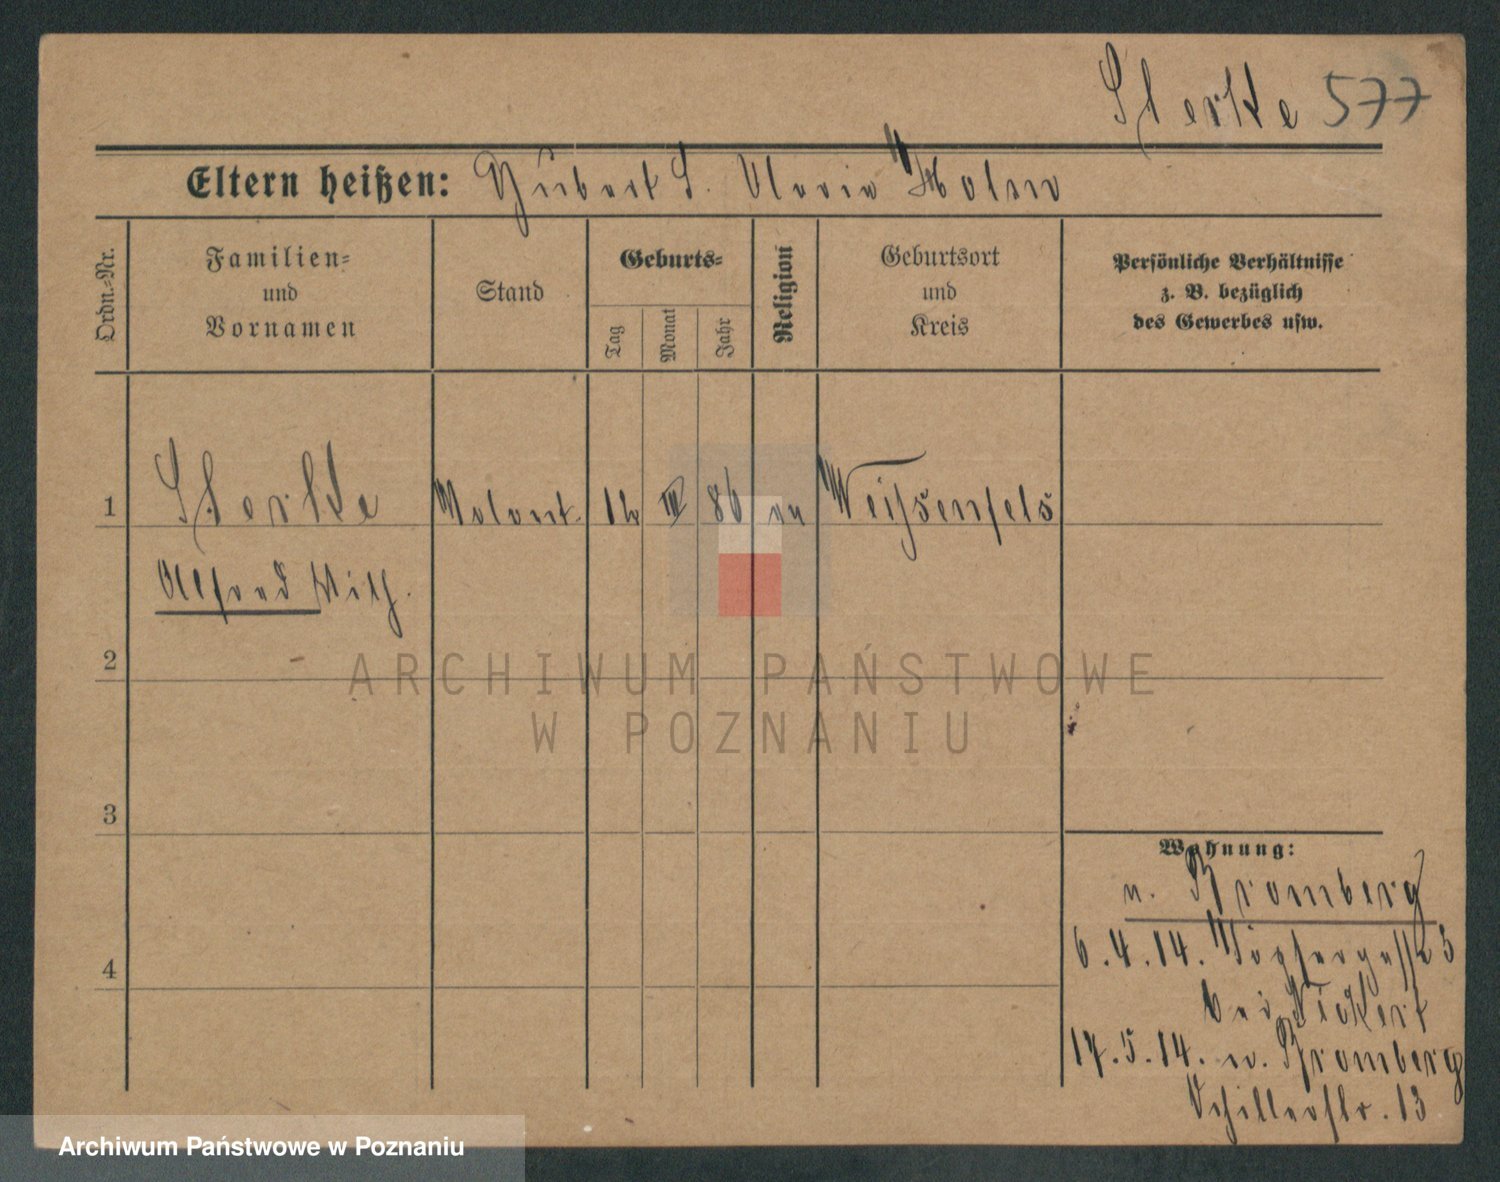 Sterke 577
Eltern heißen: Hubert S. Maria
Ordn.=Nr.
Familien=
und
Vornamen
Stand
Geburts=
Tag
Monat
Jahr
Religion
Geburtsort
und
Kreis
Persönliche Verhältnisse
z. B. bezüglich
des Gewerbes usw.
1
Sterke
12 III 86 ev Weißenfels
Alfred Wilh.
2
ARCHIWUM PAŃSTWOWE
W POZNANIU
3
Wohnung:
n. Bromberg
6.4.14. Töpfergasse 3
bei
17.5.14. n. Bromberg
Schillerstr. 13
4
Archiwum Państwowe w Poznaniu